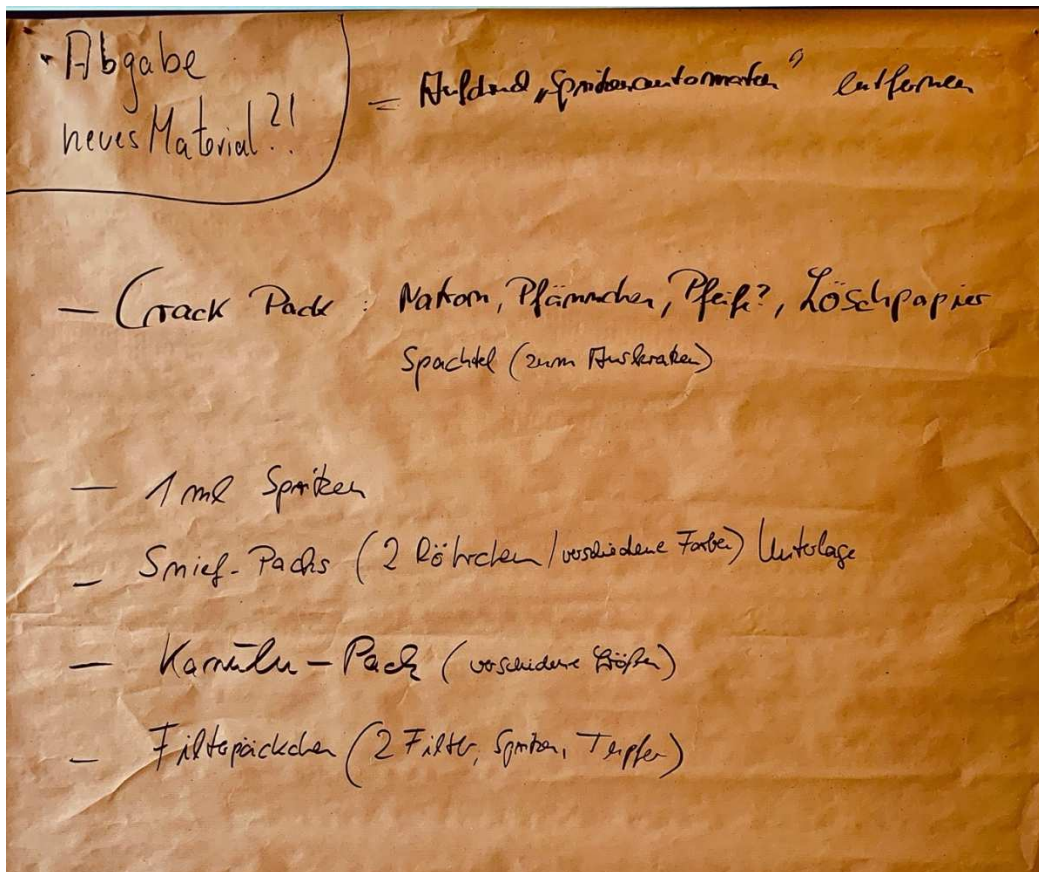 • Abgabe
neues Material?!
= Aufdruck „Spritzenautomaten" entfernen
— Crack Pack : Natron, Pfännchen, Pfeife?, Löschpapier
Spachtel (zum Auskratzen)
— 1 ml Spritzen
— Snief-Packs (2 Röhrchen/verschiedene Farben) Unterlage
— Kanülen-Pack (verschiedene Größen)
— Filterpäckchen (2 Filter, Spritzen, Tupfer)